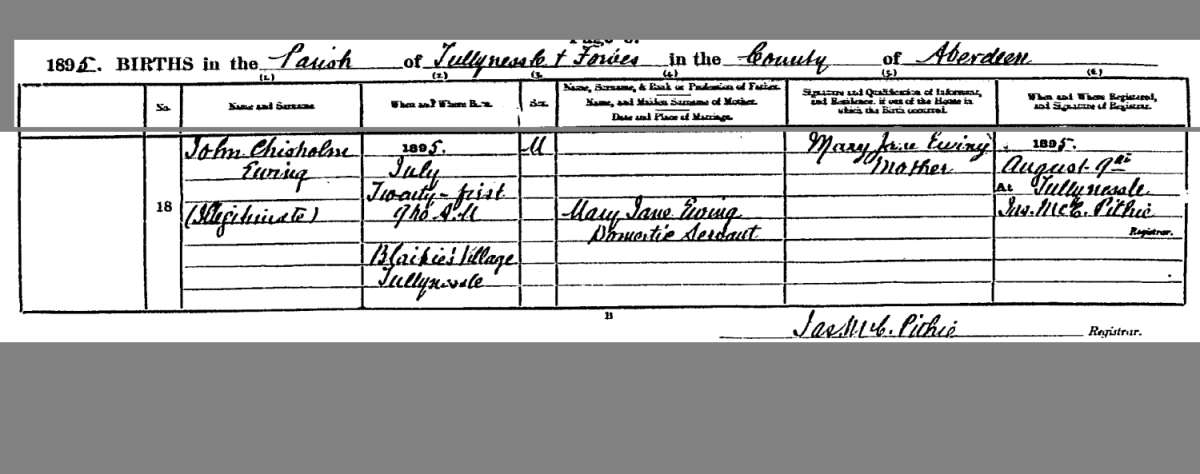 1895. BIRTHS in the Parish of Tullynessle & Forbes in the County of Aberdeen
(1.) (2.) (3. (4.) (5.) (6.)
No.
Name and Surname
When and Where Born.
Sex.
Name, Surname, & Rank or Profession of Father.
Name, and Maiden Surname of Mother.
Date and Place of Marriage.
Signature and Qualification of Informant,
and Residence, if out of the House in
which the Birth occurred.
When and Where Registered,
and Signature of Registrar.
18
John Chisholm
Ewing
(Illegitimate)
1895.
July
Twenty-first
9h0 A.M
Blaikie's Village
Tullynessle
M
Mary Jane Ewing
Domestic Servant
Mary Jane Ewing
Mother
1895.
August 9th
At Tullynessle
Jas. McC. Pithie
Registrar.
B
Jas. McC. Pithie Registrar.